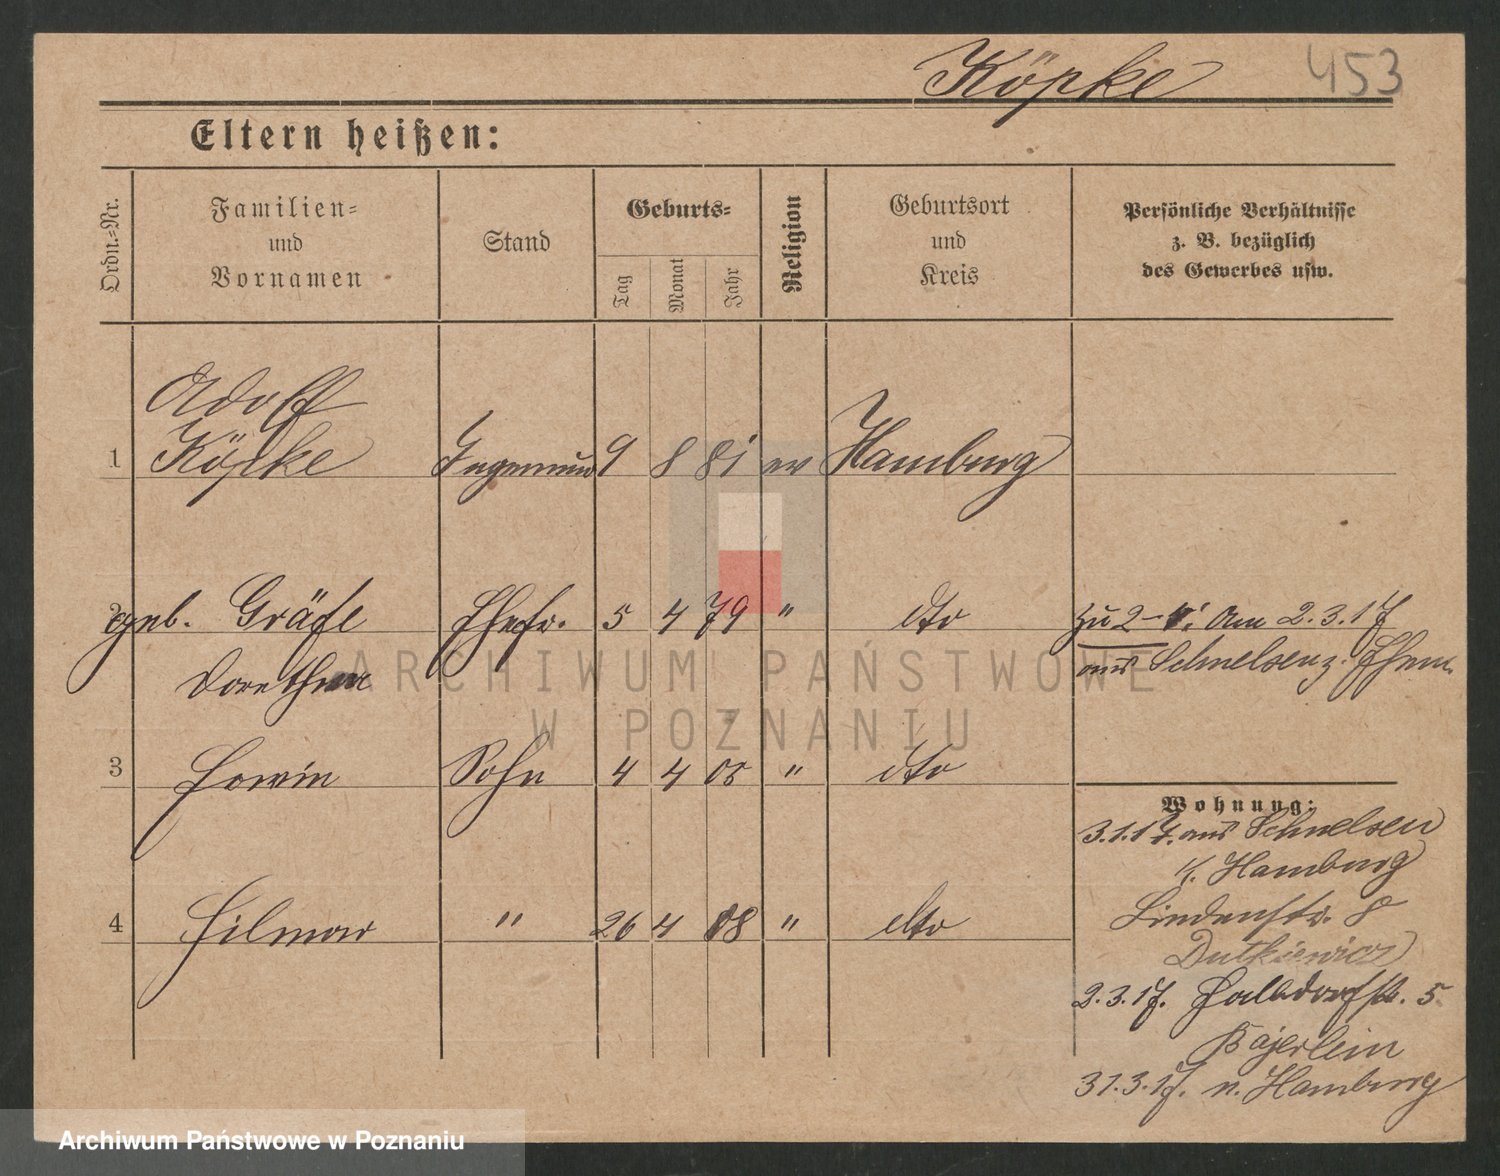 Köpke 453
Eltern heißen:
Ordn.=Nr.
Familien=
und
Vornamen
Stand
Geburts=
Tag
Monat
Jahr
Religion
Geburtsort
und
Kreis
Persönliche Verhältnisse
z. B. bezüglich
des Gewerbes usw.
Adolf
1 Köpke 9 8 81 ev Hamburg
2 geb. Gräfe Ehefr. 5 4 79 " dto zu 2 Am 2.3.17
aus Schnelsen z. Ehem.
3 Erwin Sohn 4 4 05 " dto
Wohnung:
3.1.17. aus Schnelsen
Hamburg
4 Hilmar " 26 4 08 " dto
Lindenstr. 8
Dutkiewicz
2.3.17. 5
Bajerlein
31.3.17. n. Hamburg
ARCHIWUM PAŃSTWOWE
W POZNANIU
Archiwum Państwowe w Poznaniu